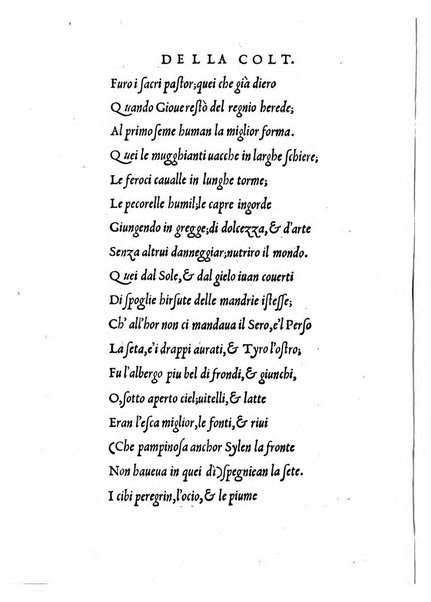 DELLA COLT.
Furo i sacri pastor; quei che già diero
Quando Gioue restò del regnio herede;
Al primo seme human la miglior forma.
Quei le mugghianti uacche in larghe schiere;
Le feroci caualle in lunghe torme;
Le pecorelle humil; le capre ingorde
Giungendo in gregge; di dolcezza, & d'arte
Senza altrui danneggiar; nutriro il mondo.
Quei dal Sole, & dal gielo iuan couerti
Di spoglie hirsute delle mandrie istesse;
Ch' all'hor non ci mandaua il Sero, e'l Perso
La seta, e'i drappi aurati, & Tyro l'ostro;
Fu l'albergo piu bel di frondi, & giunchi,
O, sotto aperto ciel; uitelli, & latte
Eran l'esca miglior, le fonti, & riui
(Che pampinosa anchor Sylen la fronte
Non haueua in quei dì) spegniean la sete.
I cibi peregrin, l'ocio, & le piume